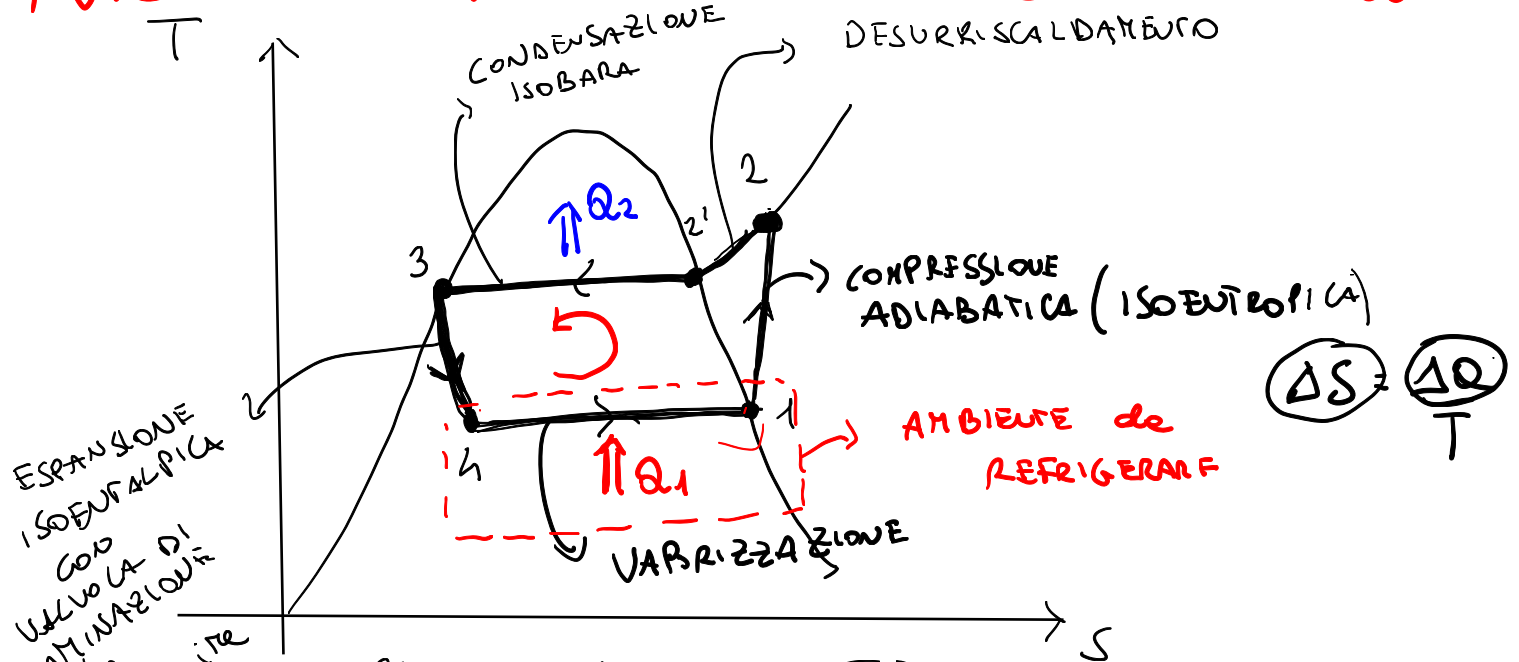 T
CONDENSAZIONE
ISOBARA
DESURRISCALDAMENTO
2
Q2
2'
3
COMPRESSIONE
ADIABATICA (ISOENTROPICA)
ΔS = ΔQ
T
1
AMBIENTE da
REFRIGERARE
4
Q1
ESPANSIONE
ISOENTALPICA
CON
VALVOLA DI
VAPORIZZAZIONE
S